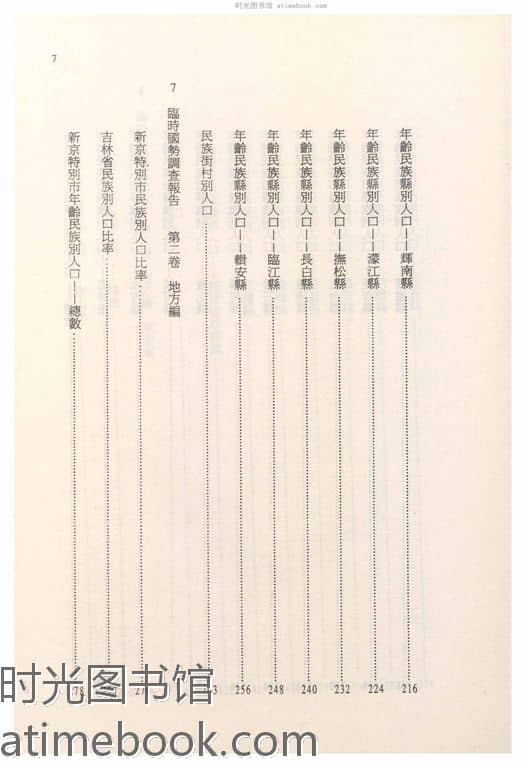 时光图书馆 atimebook.com
7
年齡民族縣別人口——輝南縣 216
年齡民族縣別人口——濛江縣 224
年齡民族縣別人口——撫松縣 232
年齡民族縣別人口——長白縣 240
年齡民族縣別人口——臨江縣 248
年齡民族縣別人口——輯安縣 256
民族街村別人口
7 臨時國勢調查報告 第二卷 地方編
新京特別市民族別人口比率
吉林省民族別人口比率
新京特別市年齡民族別人口——總數
时光图书馆
atimebook.com